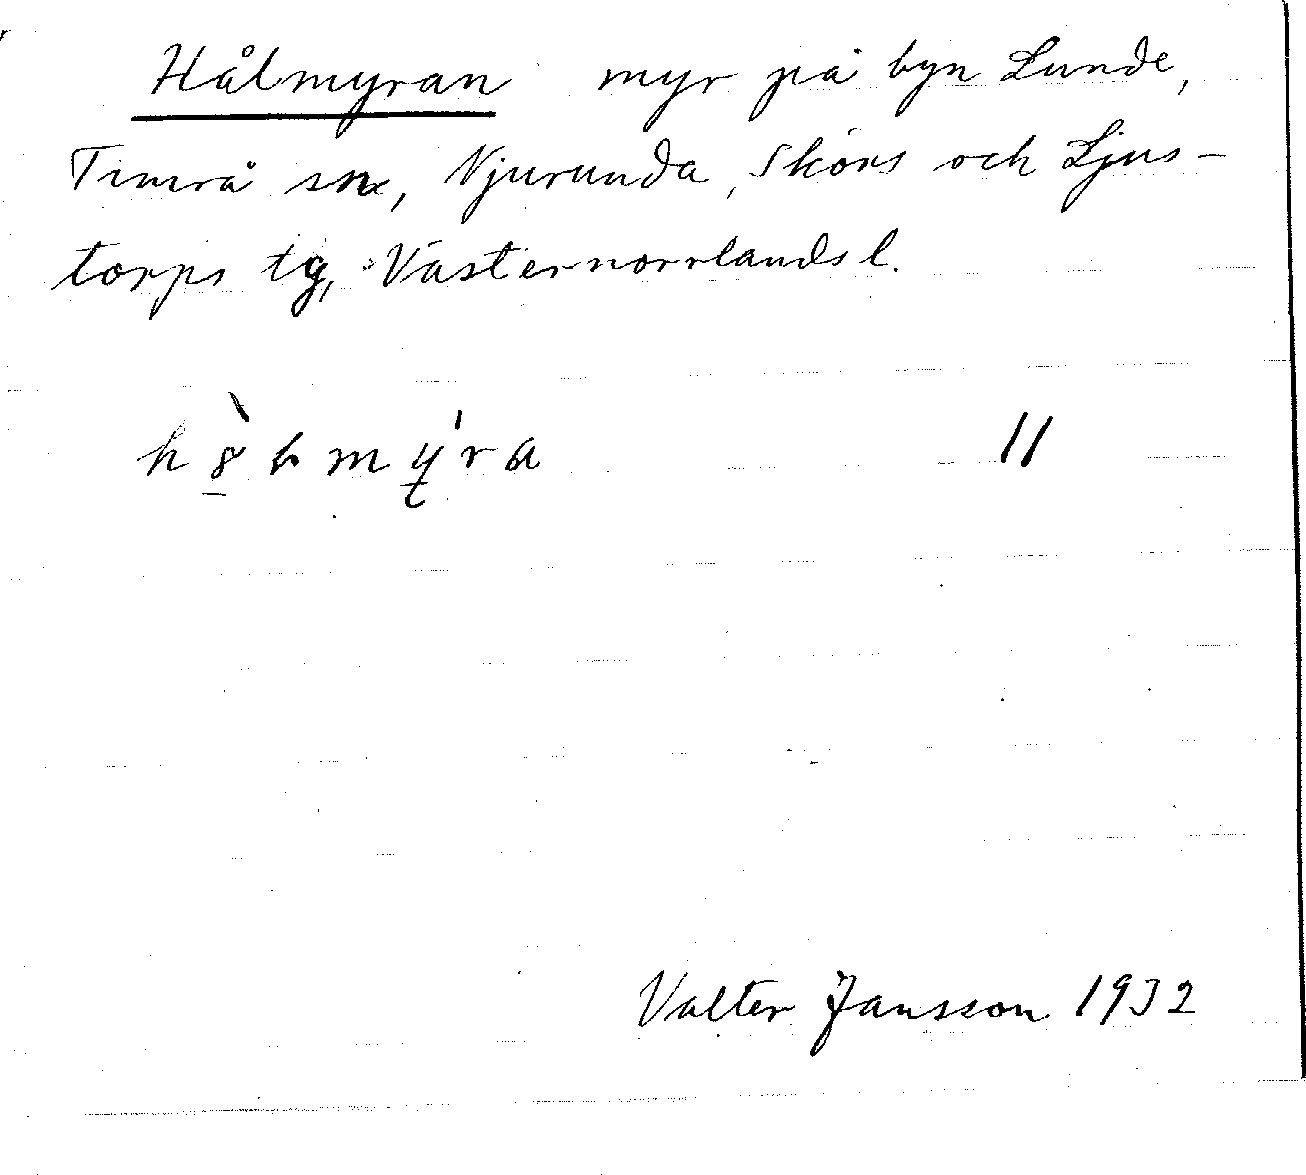 Hålmyran myr på byn Lunde,
Timrå sn, Njurunda, Sköns och Ljus-
torps tg, Västernorrlands l.
11
Valter Jansson 1932